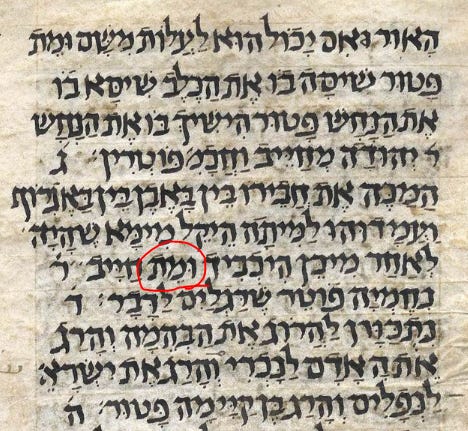 האור ואם יכול הוא לעלות משם ומת
פטור שיסה בו את הכלב שיסא בו
את הנחש פטור הישיך בו את הנחש
ר' יהודה מחייב וחכמ' פוטרין ג
המכה את חבירו בין באבן בין באגרוף
ועמידוהו למיתה היקל מימא שהיה
לאחר מיכן היכביד ומת חייב ר'
נחמיה פוטר שרגלים לדבר ד
נתכוון להרוג את הבהמה והרג
את האדם לנכרי והרג את ישרא'
לנפלים והרג בן קיימה פטור ה